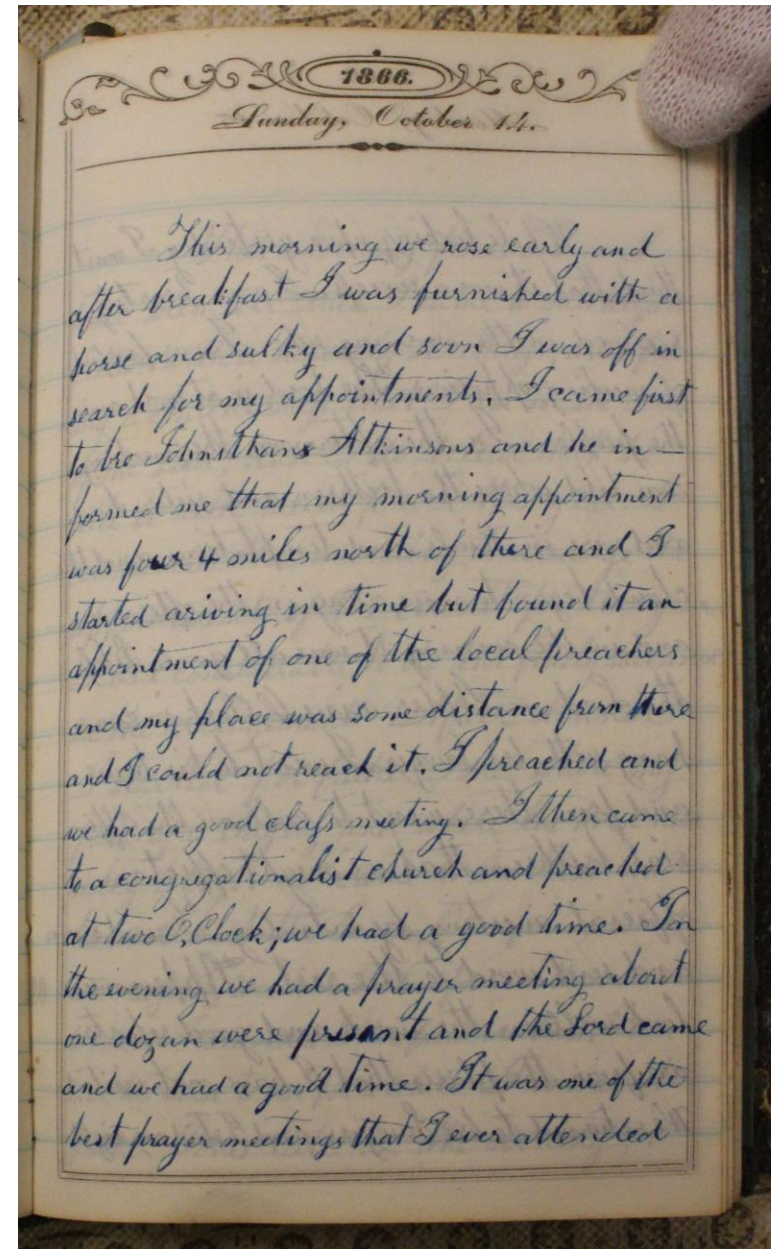 1866.
Sunday, October 14.
This morning we rose early and
after breakfast I was furnished with a
horse and sulky and soon I was off in
search for my appointments. I came first
to bro Johnithans Atkinsons and he in-
formed me that my morning appointment
was four 4 miles north of there and I
started ariving in time but found it an
appointment of one of the local preachers
and my place was some distance from there
and I could not reach it. I preached and
we had a good class meeting. I then came
to a congregationalist church and preached
at two O,Clock; we had a good time. In
the evening we had a prayer meeting about
one dozan were present and the Lord came
and we had a good time. It was one of the
best prayer meetings that I ever attended